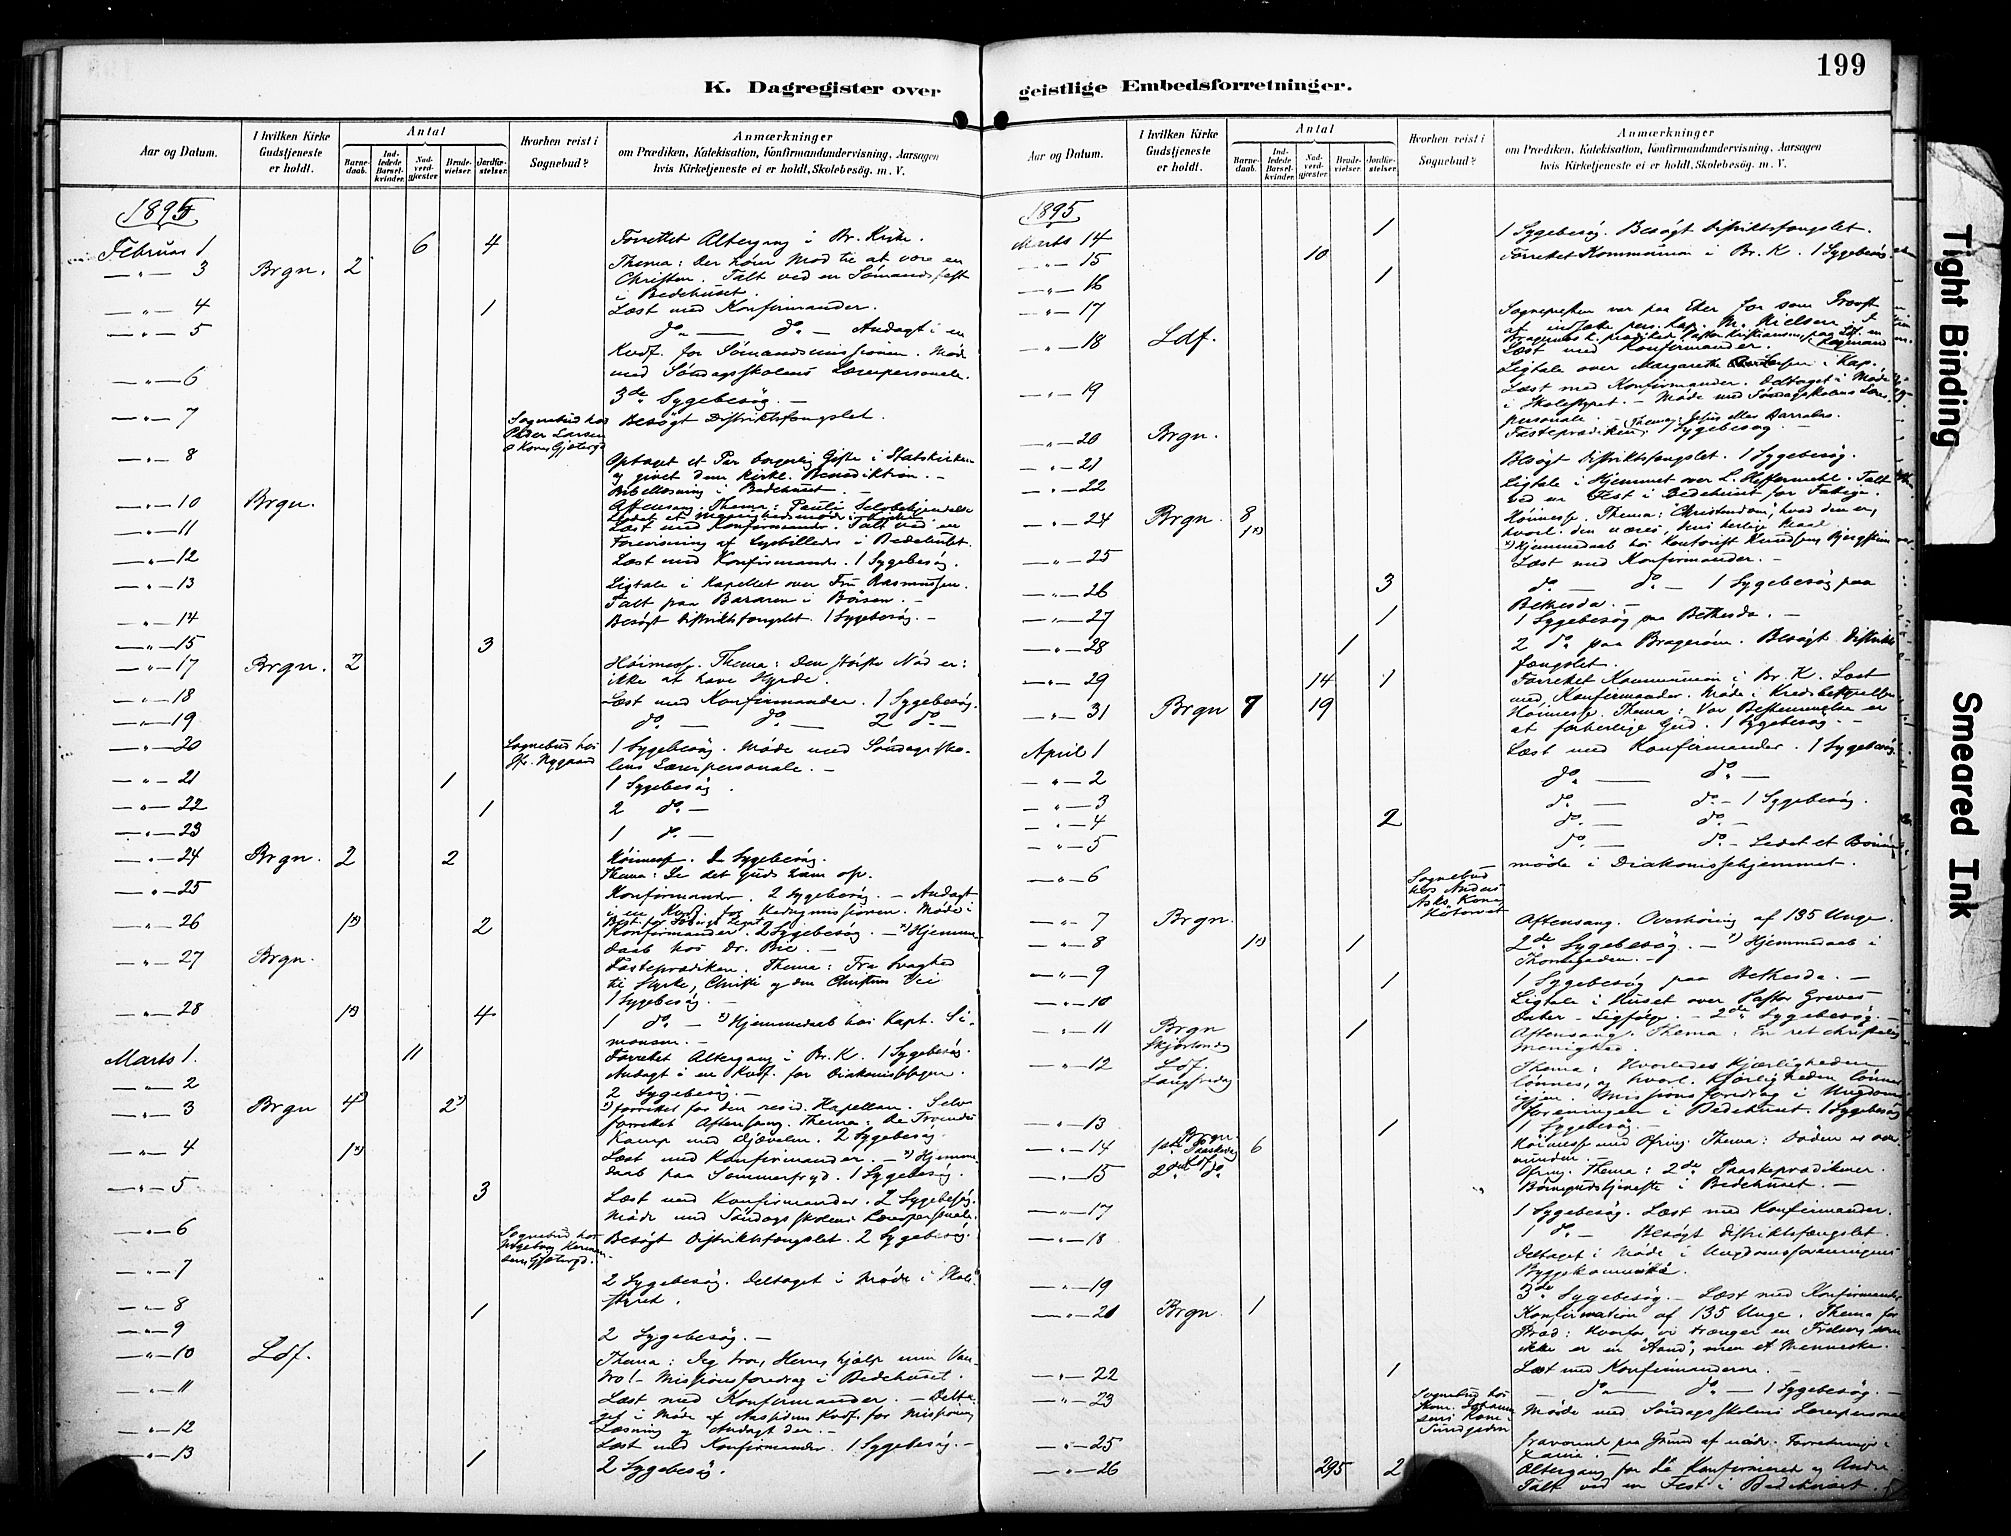 199
K. Dagregister over
geistlige Embedsforretninger.
Aar og Datum.
I hvilken Kirke Gudstjeneste er holdt.
Antal
Barnedaab.
Indledede Barselkvinder.
Nadverdgjæster
Brudevielser.
Jordfæstelser.
Hvorhen reist i Sognebud?
Anmærkninger
om Prædiken, Katekisation, Konfirmandundervisning, Aarsagen
hvis Kirketjeneste ei er holdt, Skolebesøg. m. V.
1895
Februar 1 6 4 Forrettet Altergang i Br. Kirke.
3 Brgn. 2 Thema: Der hører Mod til at være en
Christen. Talt ved en Sømandsfest
i Bedehuset.
4 1 Læst med Konfirmander.
5 do — do — Andagt i en
Kvdf. for Sømandsmissionen. Møde
med Søndagsskolens Lærerpersonale.
6 3de Sygebesøg. —
7 Sognebud hos Peder Larsen Besøgt Distriktsfængslet.
8 Optaget et Par borgerlig Gifte i Statskirken
og givet dem kirkl. Benediktion. —
Bibellæsning i Bedehuset. —
10 Brgn. Aftensang. Thema: Pauli Selvbekjendelse
11 Læst med Konfirmander. Talt ved en
Forevisning af Lysbilleder i Bedehuset.
12 Læst med Konfirmander. 1 Sygebesøg.
13 Ligtale i Kapellet over Fru Rasmussen.
Talt paa Bazaren i Børsen. —
14 Besøgt Distriktsfængslet. 1 Sygebesøg. —
15 3
17 Brgn. 2 Høimesse. Thema: Den største Nød er:
ikke at have Hyrde.
18 Læst med Konfirmander. 1 Sygebesøg.
19 do — do — 2 do —
20 Sognebud hos 1 Sygebesøg. Møde med Søndagssko-
lens Lærerpersonale. —
21 1 1 Sygebesøg.
22 1 2 do —
23 1 do —
24 Brgn. 2 2 Høimesse. 2 Sygebesøg.
Thema: Se det Guds Lam
25 Konfirmander. 2 Sygebesøg. — Andagt
26 1*) 2 Konfirmander. 2 Sygebesøg. — *) Hjemme-
daab hos Dr. Bie. —
27 Brgn. Fasteprædiken. Thema: Fra Svaghed
til Styrke, Christi og den Christnes Vei
1 Sygebesøg. —
28 1*) 4 1 do — *) Hjemmedaab hos Kapt. Si-
monsen. —
Marts 1. 11 Forrettet Altergang i Br. K. 1 Sygebesøg.
Andagt i en Kvdf. for Diakonissesagen.
2 2 Sygebesøg. —
3 Brgn 4*) 2*) *) forrettet for den resid. Kapellan. Selv
forrettet Aftensang. Thema: De Troendes
Kamp med Djævelen. 2 Sygebesøg.
4 1*) Læst med Konfirmander. — *) Hjemme-
daab paa Sommerfryd. 1 Sygebesøg.
5 3 Læst med Konfirmander. 2 Sygebesøg.
Møde med Søndagsskolens Lærerpersonale.
6 Sognebud hos Besøgt Distriktsfængslet. 2 Sygebesøg.
7 2 Sygebesøg. Deltaget i Møde i Skole-
styret.
8 1
9 2 Sygebesøg. —
10 Ldf. Thema: Jeg tror, Herre, hjælp min Van-
tro! — Missionsforedrag i Bedehuset.
11 Læst med Konfirmander. — Delta-
get i Møde af
12 Læsning og Andagt der. —
Læst med Konfirmander. 1 Sygebesøg. —
13 1 2 Sygebesøg.
1895
Marts 14 1 1 Sygebesøg. Besøgt Distriktsfængslet.
15 10 Forrettet Kommunion i Br. K. 1 Sygebesøg
16 1
17 Sognepresten var paa Eker for som Provst
at indsætte pers. Kap. M. Nielsen.
18 Ldf. Læst med Konfirmander.
Ligtale over Margarethe
19 Læst med Konfirmander. Deltaget i Møde
i Skolestyret. — Møde med Søndagsskolens Lærer-
personale. — Thema: Jesus eller Barrabas.
20 Brgn. Fasteprædiken. 1 Sygebesøg. —
21 Besøgt Distriktsfængslet. 1 Sygebesøg.
22 Ligtale i Hjemmet over L. Heftermehl. Talt
ved en Fest i Bedehuset for Fattige.
24 Brgn. 8 1*) Høimesse. Thema: Christendom, hvad den er,
hvorl. den næres, dens herlige Maal
*) Hjemmedaab hos Kontorist Knudsen, Bjergstien
25 Læst med Konfirmander. —
26 3 do — do — 1 Sygebesøg paa
Bethesda. —
27 1 1 Sygebesøg paa Bethesda. —
28 1 2 do paa Bragerøen. Besøgt Distrikts
fængslet.
29 14 1 Forrettet Kommunion i Br. K. Læst
med Konfirmander. Møde i Kredsbestyrelsen
31 Brgn 7 19 Høimesse. Thema: Vor Bestemmelse er
at forherlige Gud. 1 Sygebesøg. —
April 1 Læst med Konfirmander. 1 Sygebesøg
2 do — do —
3 do — do — 1 Sygebesøg.
4 2 do — do —
5 do — do — Ledet et Bønne-
møde i Diakonissehjemmet.
6 Sognebud hos Anders
7 Brgn. Aftensang. Overhøring af 135 Unge.
8 1*) 1 2de Sygebesøg. — *) Hjemmedaab i
Thornegaden. —
9 1 1 Sygebesøg paa Bethesda. —
10 Ligtale i Huset over Pastor Greves
Datter — Ligfølge. — 2de Sygebesøg. —
11 Brgn Skjærtorsdag 1 Aftensang. Thema: En ret christelig
Menighed.
12 Ldf. Langfredag Thema: Hvorledes Kjærligheden
lønnes, og hvorl. Kjærligheden lønner
igjen. Missionsforedrag i Ungdoms
foreningen i Bedehuset. 1 Sygebesøg
13 1 1 Sygebesøg. —
14 Brgn. 1ste Paaskedag 6 Høimesse med Ofring. Thema: Døden er over-
vunden. —
15 Ldf. 2den do Ofring. Thema: 2de Paaskeprædikener.
Børnegudstjeneste i Bedehuset. —
17 1 Sygebesøg. Læst med Konfirmander.
18 1 do — Besøgt Distriktsfængslet.
Deltaget i Møde i Ungdomsforeningens
Byggekomitee.
19 3de Sygebesøg. — Læst med Konfirmander
21 Brgn. 1 Konfirmation af 135 Unge. Thema for
Hvorfor vi trænger en Frelser, som
ikke er en "Aand", men et Menneske. —
22 1 Læst med Konfirmanderne. —
23 Sognebud hos — do — do — 1 Sygebesøg. —
Møde med Søndagsskolens Lærerpersonale
25 fraværende paa Grund af nødv. Forretninger i
26 295 2 Altergang for de Konfirmerede og Andre
Talt ved en Fest i Bedehuset.
Tight Binding
Smeared Ink